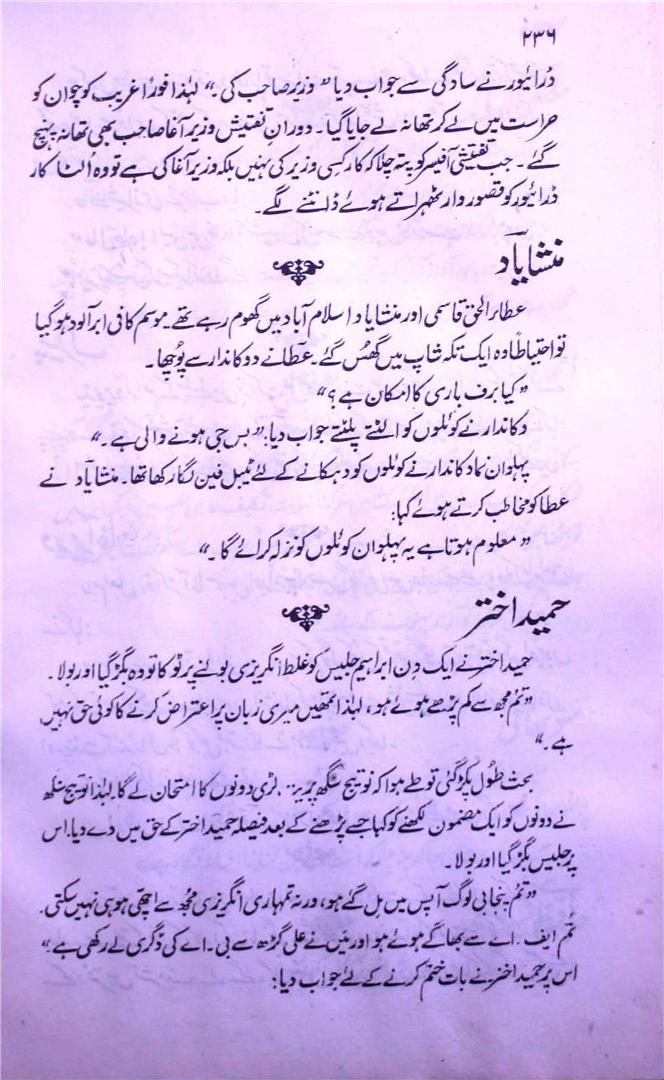 ۲۳۶
ڈرائیور نے سادگی سے جواب دیا ”وزیر صاحب کی۔“ لہٰذا فوراً غریب کوچوان کو
حراست میں لے کر تھانہ لے جایا گیا۔ دورانِ تفتیش وزیر آغا صاحب بھی تھانہ پہنچ
گئے۔ جب تفتیشی آفیسر کو پتہ چلا کہ کار کسی وزیر کی نہیں بلکہ وزیر آغا کی ہے تو وہ اُلٹا کار
ڈرائیور کو قصور وار ٹھہراتے ہوئے ڈانٹنے لگے۔
منشا یاد
عطاء الحق قاسمی اور منشا یاد اسلام آباد میں گھوم رہے تھے۔ موسم کافی ابر آلود ہو گیا
تو احتیاطاً وہ ایک تکہ شاپ میں گھُس گئے۔ عطا نے دوکاندار سے پُوچھا۔
”کیا برف باری کا امکان ہے؟“
دکاندار نے کوئلوں کو الٹتے پلٹتے جواب دیا: ”بس جی ہونے والی ہے۔“
پہلوان نما دکاندار نے کوئلوں کو دہکانے کے لئے ٹیبل فین لگا رکھا تھا۔ منشا یاد نے
عطا کو مخاطب کرتے ہوئے کہا:
”معلوم ہوتا ہے یہ پہلوان کوئلوں کو نزلہ کرائے گا۔“
حمید اختر
حمید اختر نے ایک دن ابراہیم جلیس کو غلط انگریزی بولنے پر ٹوکا تو وہ بگڑ گیا اور بولا۔
”تم مجھ سے کم پڑھے ہوئے ہو، لہٰذا تمھیں میری زبان پر اعتراض کرنے کا کوئی حق نہیں
ہے۔“
بحث طُول پکڑ گئی تو طے ہوا کہ نوتیج سنگھ پریت لڑی دونوں کا امتحان لے گا۔ لہٰذا نوتیج سنگھ
نے دونوں کو ایک مضمون لکھنے کو کہا جسے پڑھنے کے بعد فیصلہ حمید اختر کے حق میں دے دیا۔ اس
پر جلیس بگڑ گیا اور بولا۔
”تم پنجابی لوگ آپس میں مل گئے ہو، ورنہ تمہاری انگریزی مجھ سے اچھی ہو ہی نہیں سکتی۔
تُم ایف۔اے سے بھاگے ہوئے ہو اور میں نے علی گڑھ سے بی۔اے کی ڈگری لے رکھی ہے۔“
اس پر حمید اختر نے بات ختم کرنے کے لئے جواب دیا: